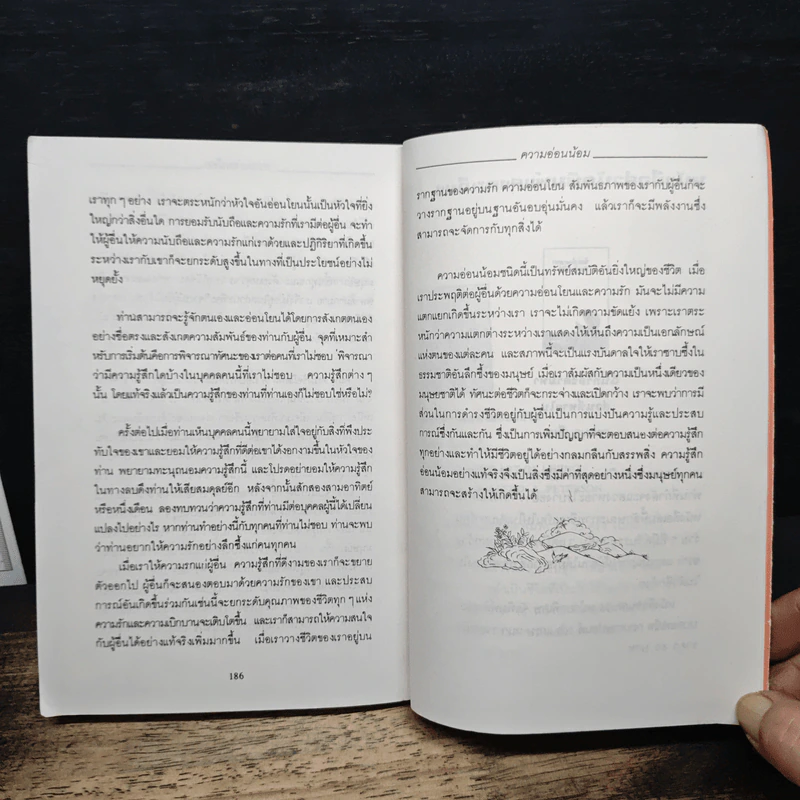 เราทุกๆอย่าง เราจะตระหนักว่าหัวใจอันอ่อนโยนนั้นเป็นหัวใจที่ยิ่ง
ใหญ่กว่าสิ่งอื่นใด การยอมรับนับถือและความรักที่เรามีต่อผู้อื่น จะทำ
ให้ผู้อื่นให้ความนับถือและความรักแก่เราด้วยและปฏิกิริยาที่เกิดขึ้น
ระหว่างเรากับเขาก็จะยกระดับสูงขึ้นในทางที่เป็นประโยชน์อย่างไม่
หยุดยั้ง
ท่านสามารถจะรู้จักตนเองและอ่อนโยนได้โดยการสังเกตตนเอง
อย่างซื่อตรงและสังเกตความสัมพันธ์ของท่านกับผู้อื่น จุดที่เหมาะสำ
หรับการเริ่มต้นคือการพิจารณาทัศนะของเราต่อคนที่เราไม่ชอบ พิจารณา
ว่ามีความรู้สึกใดบ้างในบุคคลคนนี้ที่เราไม่ชอบ ความรู้สึกต่างๆ
นั้น โดยแท้จริงแล้วเป็นความรู้สึกของท่านที่ท่านเองก็ไม่ชอบใช่หรือไม่?
ครั้งต่อไปเมื่อท่านเห็นบุคคลคนนี้พยายามใส่ใจอยู่กับสิ่งที่พึงประ
ทับใจของเขาและยอมให้ความรู้สึกที่ดีต่อเขาได้งอกงามขึ้นในหัวใจของ
ท่าน พยายามทะนุถนอมความรู้สึกนี้ และโปรดอย่ายอมให้ความรู้สึก
ในทางลบดึงท่านให้เสียสมดุลย์อีก หลังจากนั้นสักสองสามอาทิตย์
หรือหนึ่งเดือน ลองทบทวนว่าความรู้สึกที่ท่านมีต่อบุคคลผู้นี้ได้เปลี่ยน
แปลงไปอย่างไร หากท่านทำอย่างนี้กับทุกคนที่ท่านไม่ชอบ ท่านจะพบ
ว่าท่านอยากให้ความรักอย่างลึกซึ้งแก่คนทุกคน
เมื่อเราให้ความรักแก่ผู้อื่น ความรู้สึกที่ดีงามของเราก็จะขยาย
ตัวออกไป ผู้อื่นก็จะสนองตอบมาด้วยความรักของเขา และประสบ
การณ์อันเกิดขึ้นร่วมกันเช่นนี้จะยกระดับคุณภาพของชีวิตทุกๆแห่ง
ความรักและความเบิกบานจะเติบโตขึ้น และเราก็สามารถให้ความสนใจ
กับผู้อื่นได้อย่างแท้จริงเพิ่มมากขึ้น เมื่อเราวางชีวิตของเราอยู่บน
186
ความอ่อนน้อม
รากฐานของความรัก ความอ่อนโยน สัมพันธภาพของเรากับผู้อื่นก็จะ
วางรากฐานอยู่บนฐานอันอบอุ่นมั่นคง แล้วเราก็จะมีพลังงานซึ่ง
สามารถจะจัดการกับทุกสิ่งได้
ความอ่อนน้อมชนิดนี้เป็นทรัพย์สมบัติอันยิ่งใหญ่ของชีวิต เมื่อ
เราประพฤติต่อผู้อื่นด้วยความอ่อนโยนและความรัก มันจะไม่มีความ
แตกแยกเกิดขึ้นระหว่างเรา เราจะไม่เกิดความขัดแย้ง เพราะเราตระ
หนักว่าความแตกต่างระหว่างเราแสดงให้เห็นถึงความเป็นเอกลักษณ์
แห่งตนของแต่ละคน และสภาพนี้จะเป็นแรงบันดาลใจให้เราซาบซึ้งใน
ธรรมชาติอันลึกซึ้งของมนุษย์ เมื่อเราสัมผัสกับความเป็นหนึ่งเดียวของ
มนุษยชาติได้ ทัศนะต่อชีวิตก็จะกระจ่างและเปิดกว้าง เราจะพบว่าการมี
ส่วนในการดำรงชีวิตอยู่กับผู้อื่นเป็นการแบ่งปันความรู้และประสบ
การณ์ซึ่งกันและกัน ซึ่งเป็นการเพิ่มปัญญาที่จะตอบสนองต่อความรู้สึก
ทุกอย่างและทำให้มีชีวิตอยู่ได้อย่างกลมกลืนกับสรรพสิ่ง ความรู้สึก
อ่อนน้อมอย่างแท้จริงจึงเป็นสิ่งซึ่งมีค่าที่สุดอย่างหนึ่งซึ่งมนุษย์ทุกคน
สามารถจะสร้างให้เกิดขึ้นได้